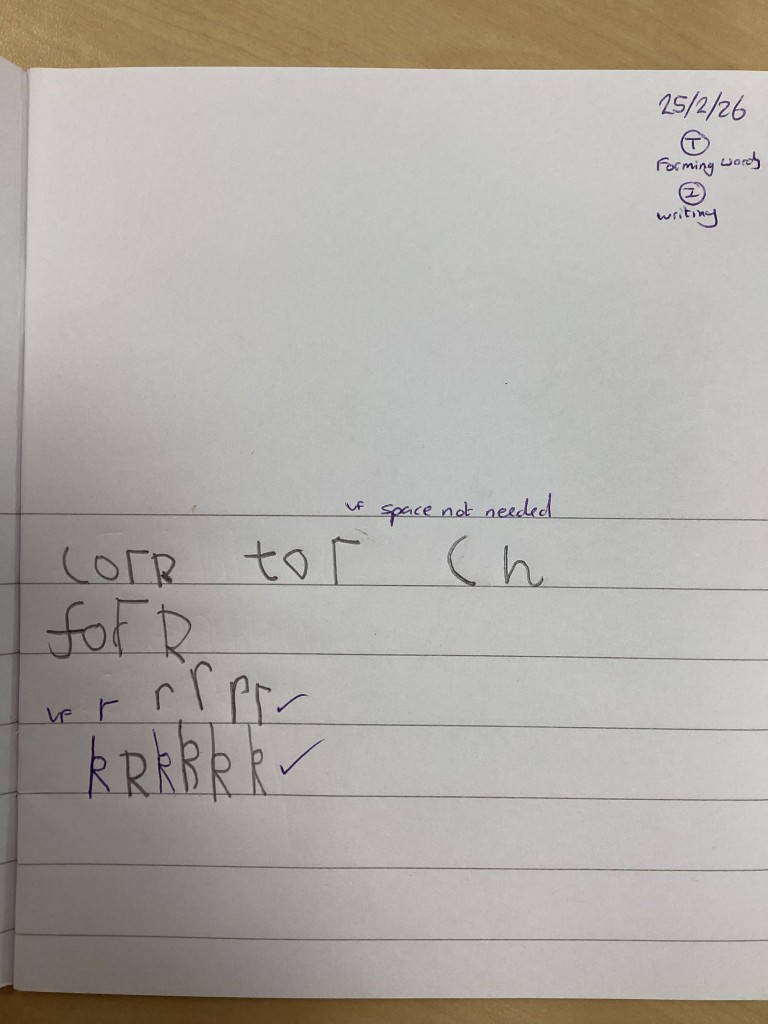 25/2/26
T
Forming words
I
writing
VF space not needed
cork tor ch
fork
VF r r r r r ✓
k k k k k k ✓